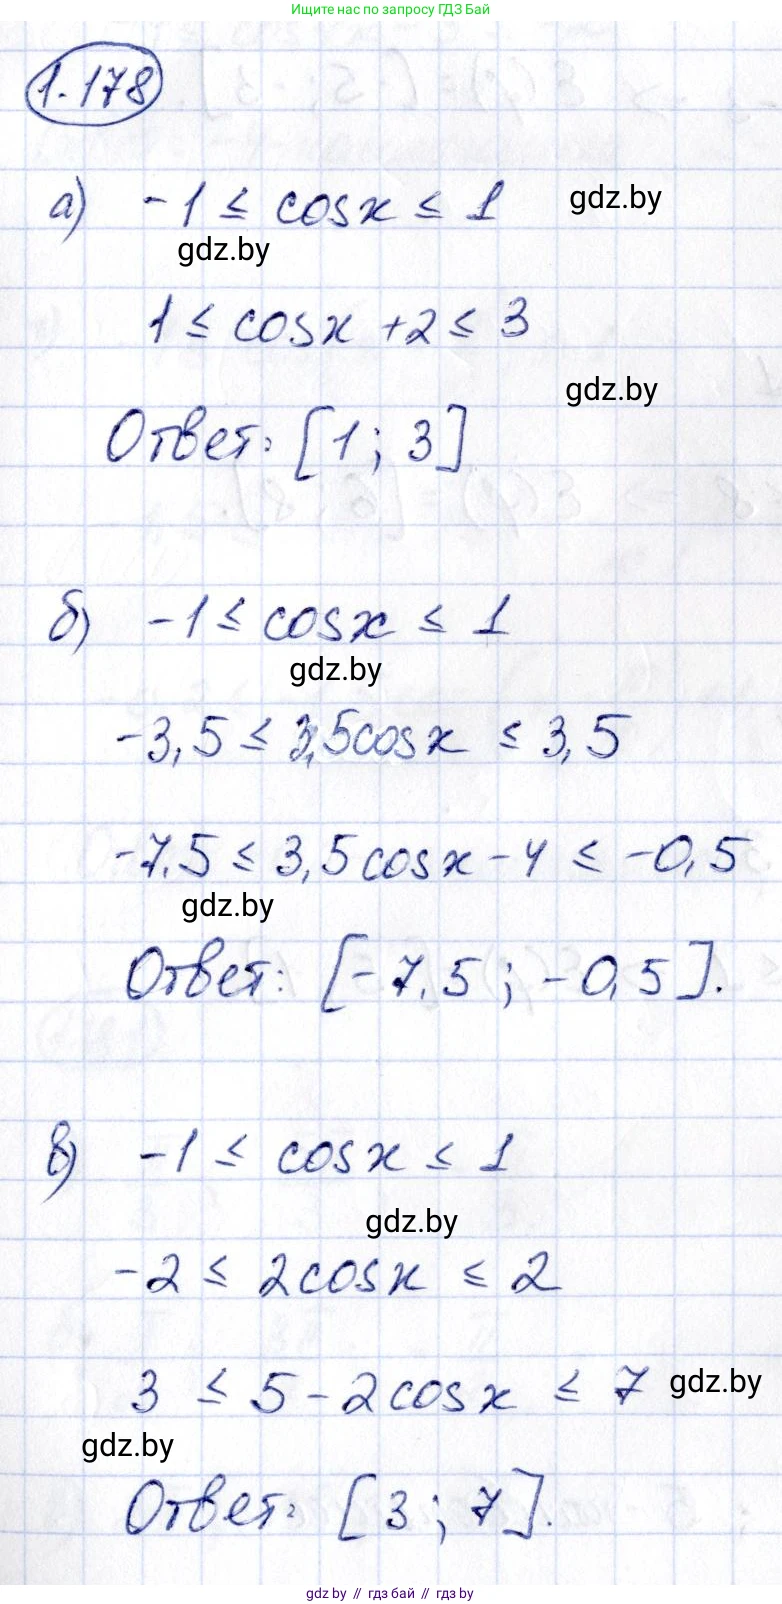 Ищите нас по запросу ГДЗ Бай
1.178
а) -1 ≤ cosx ≤ 1
gdz.by
gdz.by
1 ≤ cosx +2 ≤ 3
gdz.by
Ответ: [1; 3]
б) -1 ≤ cosx ≤ 1
gdz.by
-3,5 ≤ 3,5cosx ≤ 3,5
-7.5 ≤ 3,5cosx - 4 ≤ -0,5
gdz.by
Ответ: [-7.5; -0,5].
в) -1 ≤ cosx ≤ 1
gdz.by
-2 ≤ 2cosx ≤ 2
3 ≤ 5-2cosx ≤ 7
gdz.by
gdz.by
Ответ: [3; 7].
gdz.by // гдз бай // gdz by